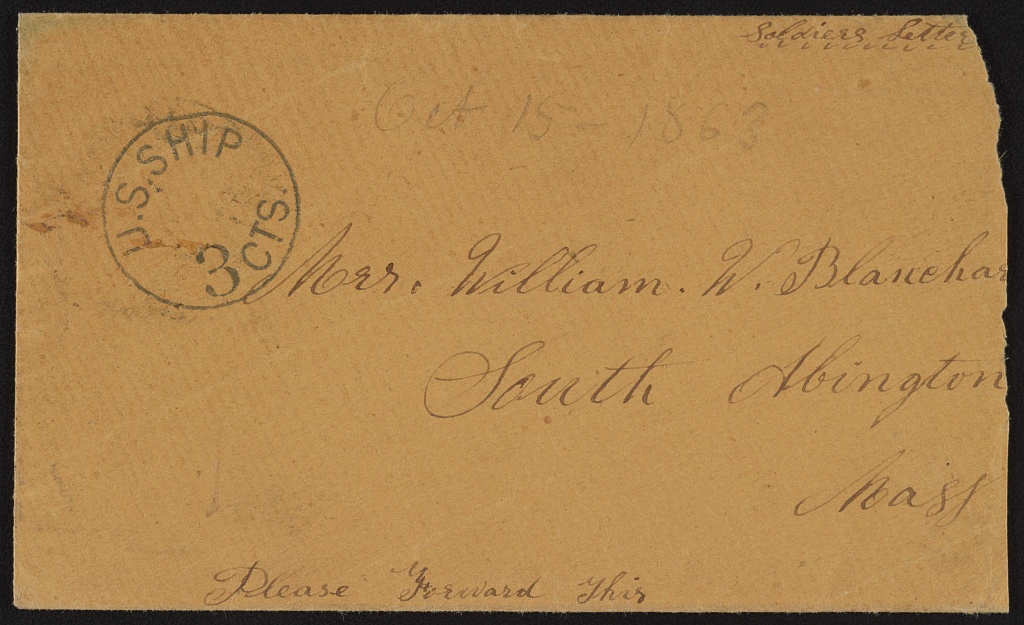 Soldiers Letter
Oct 15 - 1863
U.S. SHIP
3 CTS.
Mrs. William. W. Blanchar
South Abington
Mass
Please Forward This